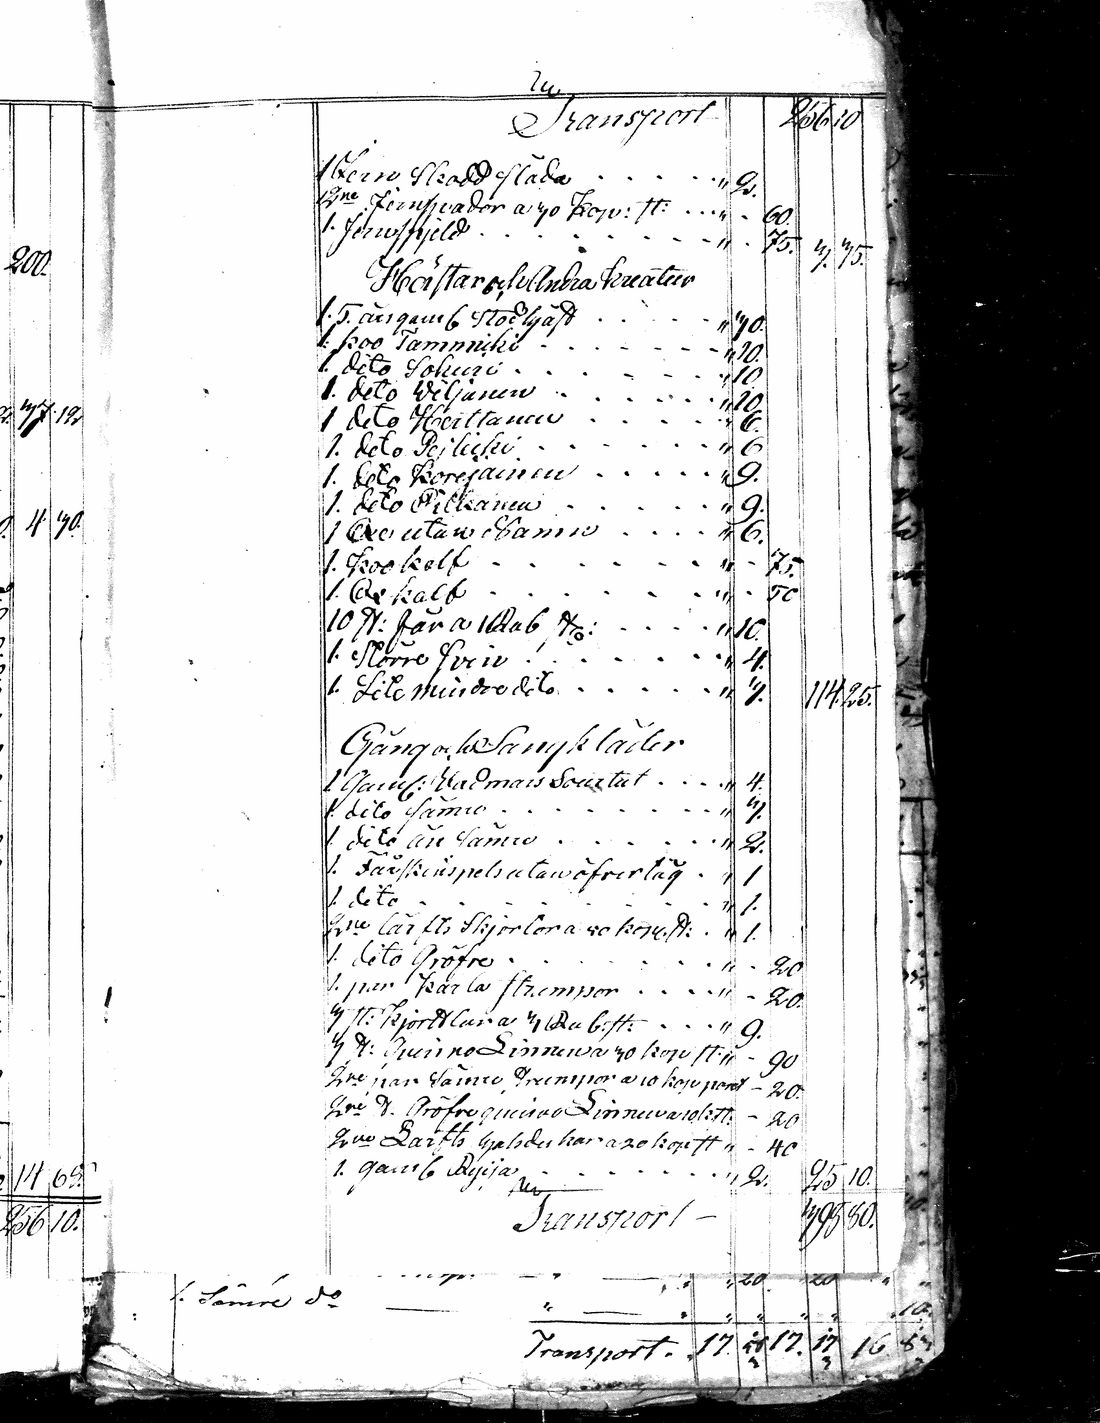 Transport 256 10.
1 Jern Skodd Släda " 2.
2ne Jernspador a 30 Kop: st: " - 60.
1. Jernspjeld " - 75. 3. 35.
Hästar och Andra Kreatur
1. 5. års gamb Stod häst " 30.
1. koo Tammiki " 10.
1. dito Sokuri " 10
1. dito Wiljanen " 10
1 dito Heittanen " 6.
1. dito " 6
1. dito Korejainen " 9.
1. dito " 9.
1 Oxe utaw Namn " 6.
1. Koo kalf " - 75.
1. Ox kalf " - 50
10 st: Får a 1 Rub st: " 10.
1. Större Svin " 4.
1. Lite mindre dito " 3. 114. 25.
Gång och Sängkläder
1 Gamb: Wadmars Sourtut " 4.
1. dito Sämre " 3.
1. dito än Sämre " 2.
1. Fårskinspels utan öfvertüg " 1
1. dito " 1.
2ne lärfts Skjortor a 50 kop. st: " 1.
1. dito Gröfre " - 20
1. par Karla strumpor " - 20.
3 st: Kjortlar a 3 Rub. st: " 9.
3 st: Quinno Linnen a 30 kop st: " - 90
2ne par Sämre Strumpor a 10 kop paret - 20.
2ne st. Gröfre quinno Linnen a 10 k st: - 20
2ne Lärfts halsdukar a 20 kop st " - 40
1. gamb Ryija " 2. 25 10.
Transport 398 80.
200.
37. 12
4 30.
14 60
256 10.
20 20
1. Sämre do " " 10.
Transport. 17. 17. 17 16